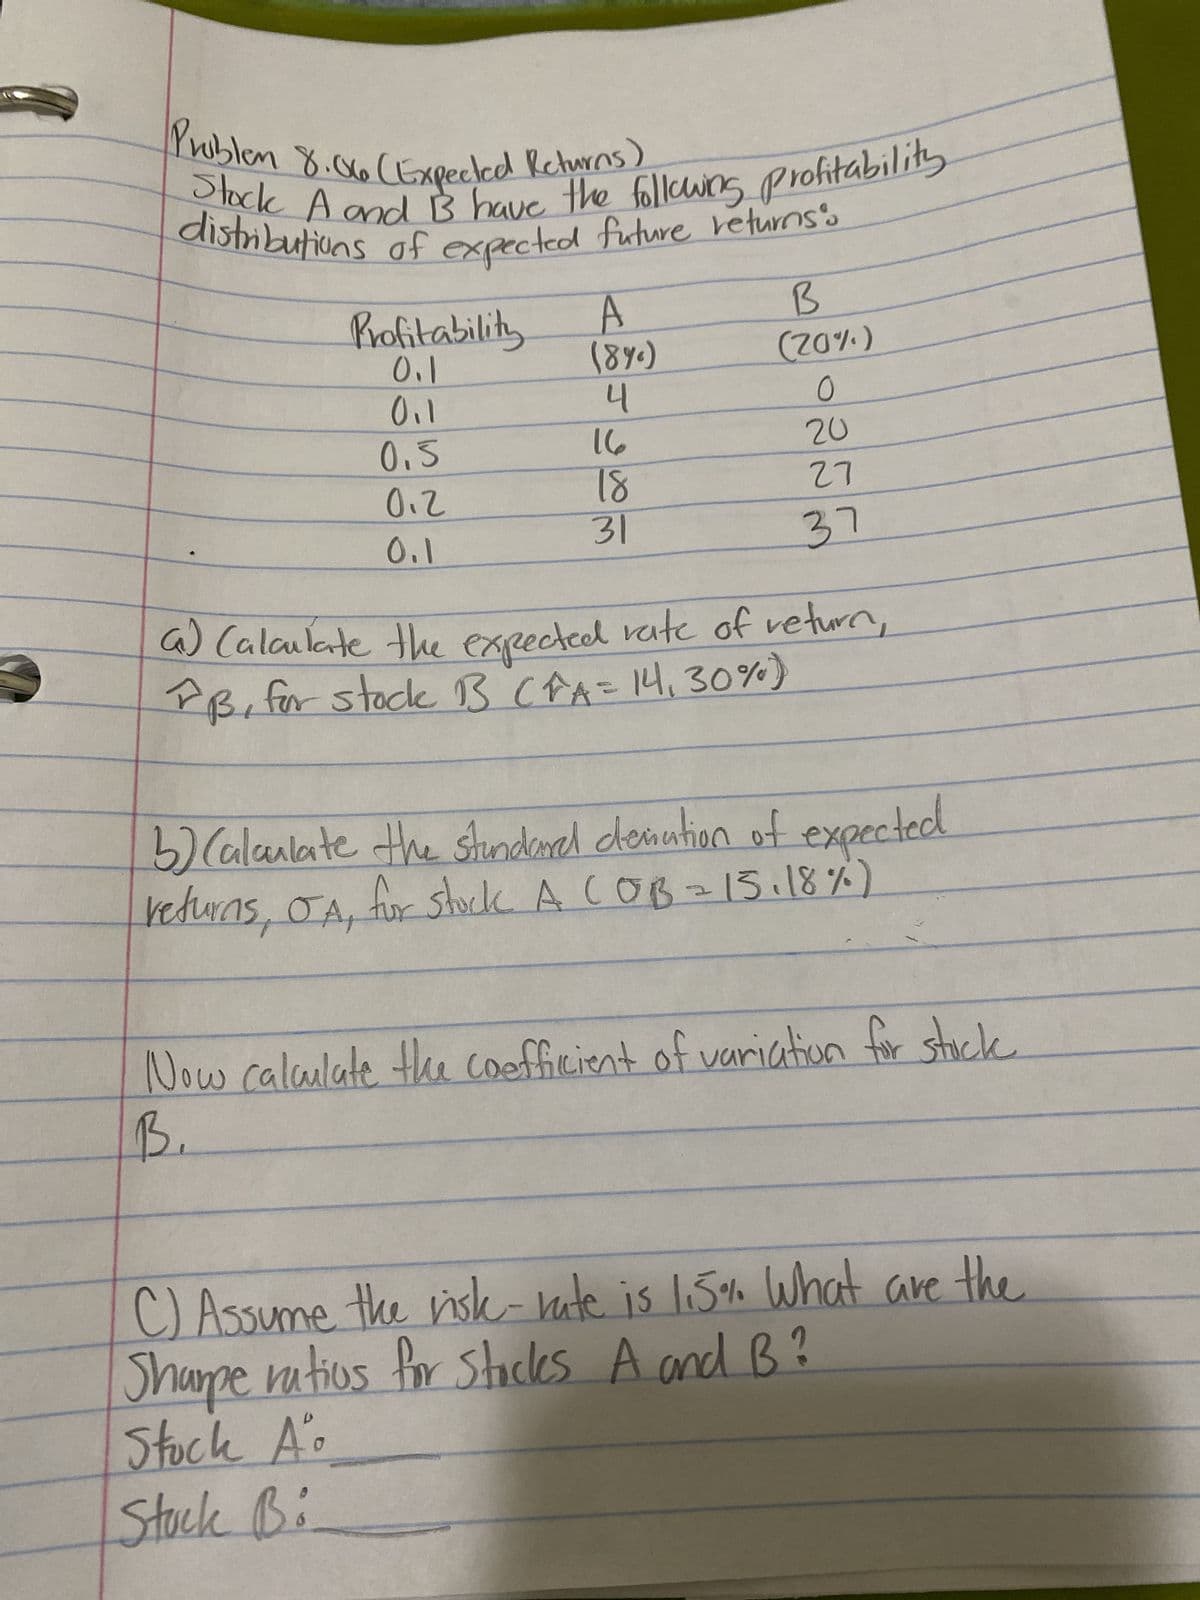 Problem 8.06 (Expected Returns)
Stock A and B have the following profitability
distributions of expected future returns:
Profitability A B
0.1 (8%) (20%)
0.1 4 0
0.5 16 20
0.2 18 27
0.1 31 37
a) Calculate the expected rate of return,
r̂B, for stock B (r̂A = 14.30%)
b) Calculate the standard deviation of expected
returns, σA, for stock A (σB = 15.18%)
Now calculate the coefficient of variation for stock
B.
C) Assume the risk-rate is 1.5% What are the
Sharpe ratios for stocks A and B?
Stock A: ____
Stock B: ____